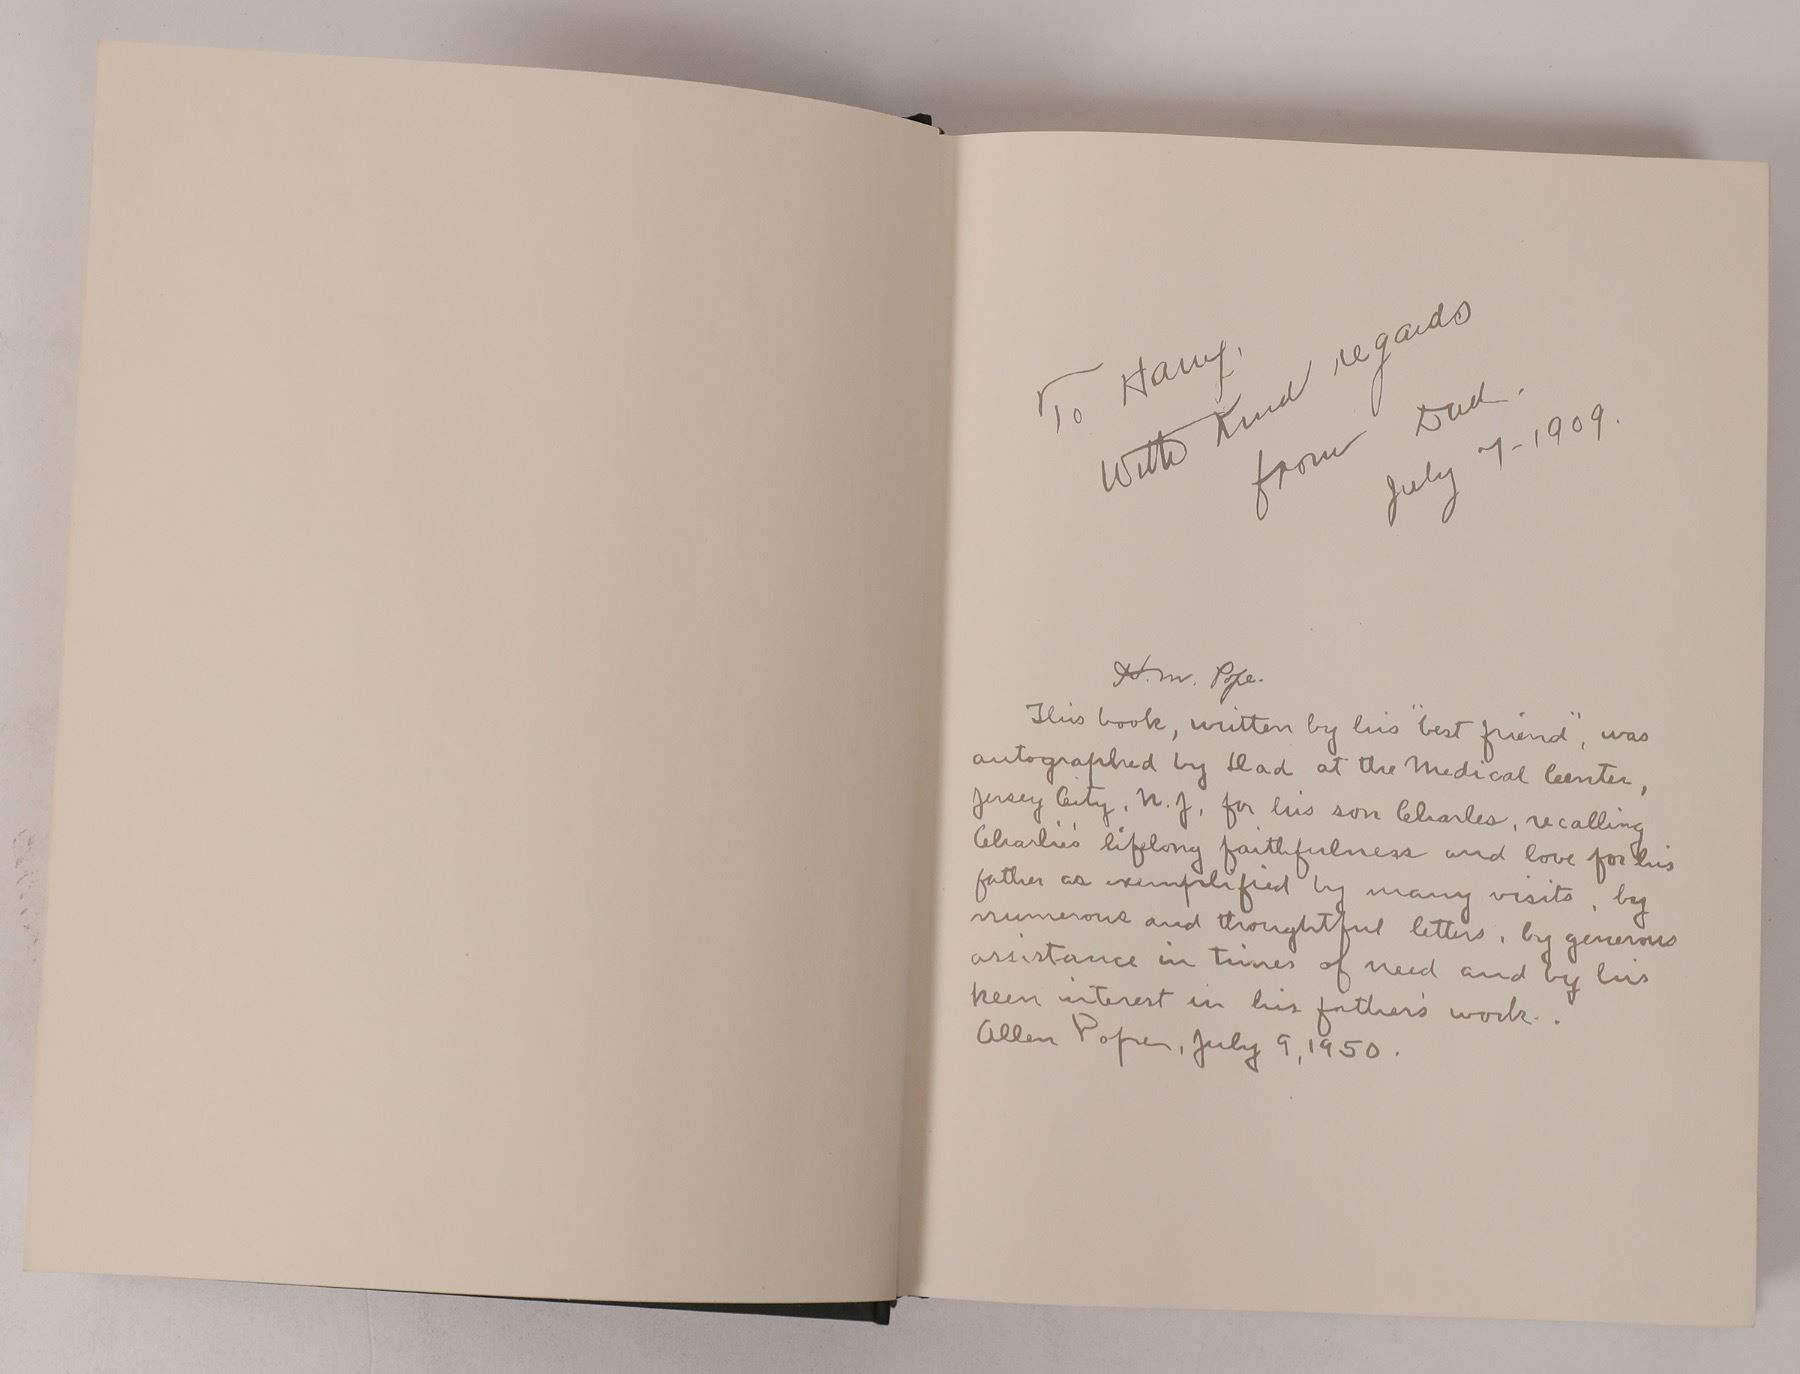 To Harry,
With Kind regards
from Dad.
July 7-1909.
H. M. Pope.
This book, written by his "best friend", was
autographed by Dad at the Medical Center,
Jersey City, N.J, for his son Charles, recalling
Charlie's lifelong faithfulness and love for his
father as exemplified by many visits, by
numerous and thoughtful letters, by generous
assistance in times of need and by his
keen interest in his father's work..
Allen Pope, July 9, 1950.